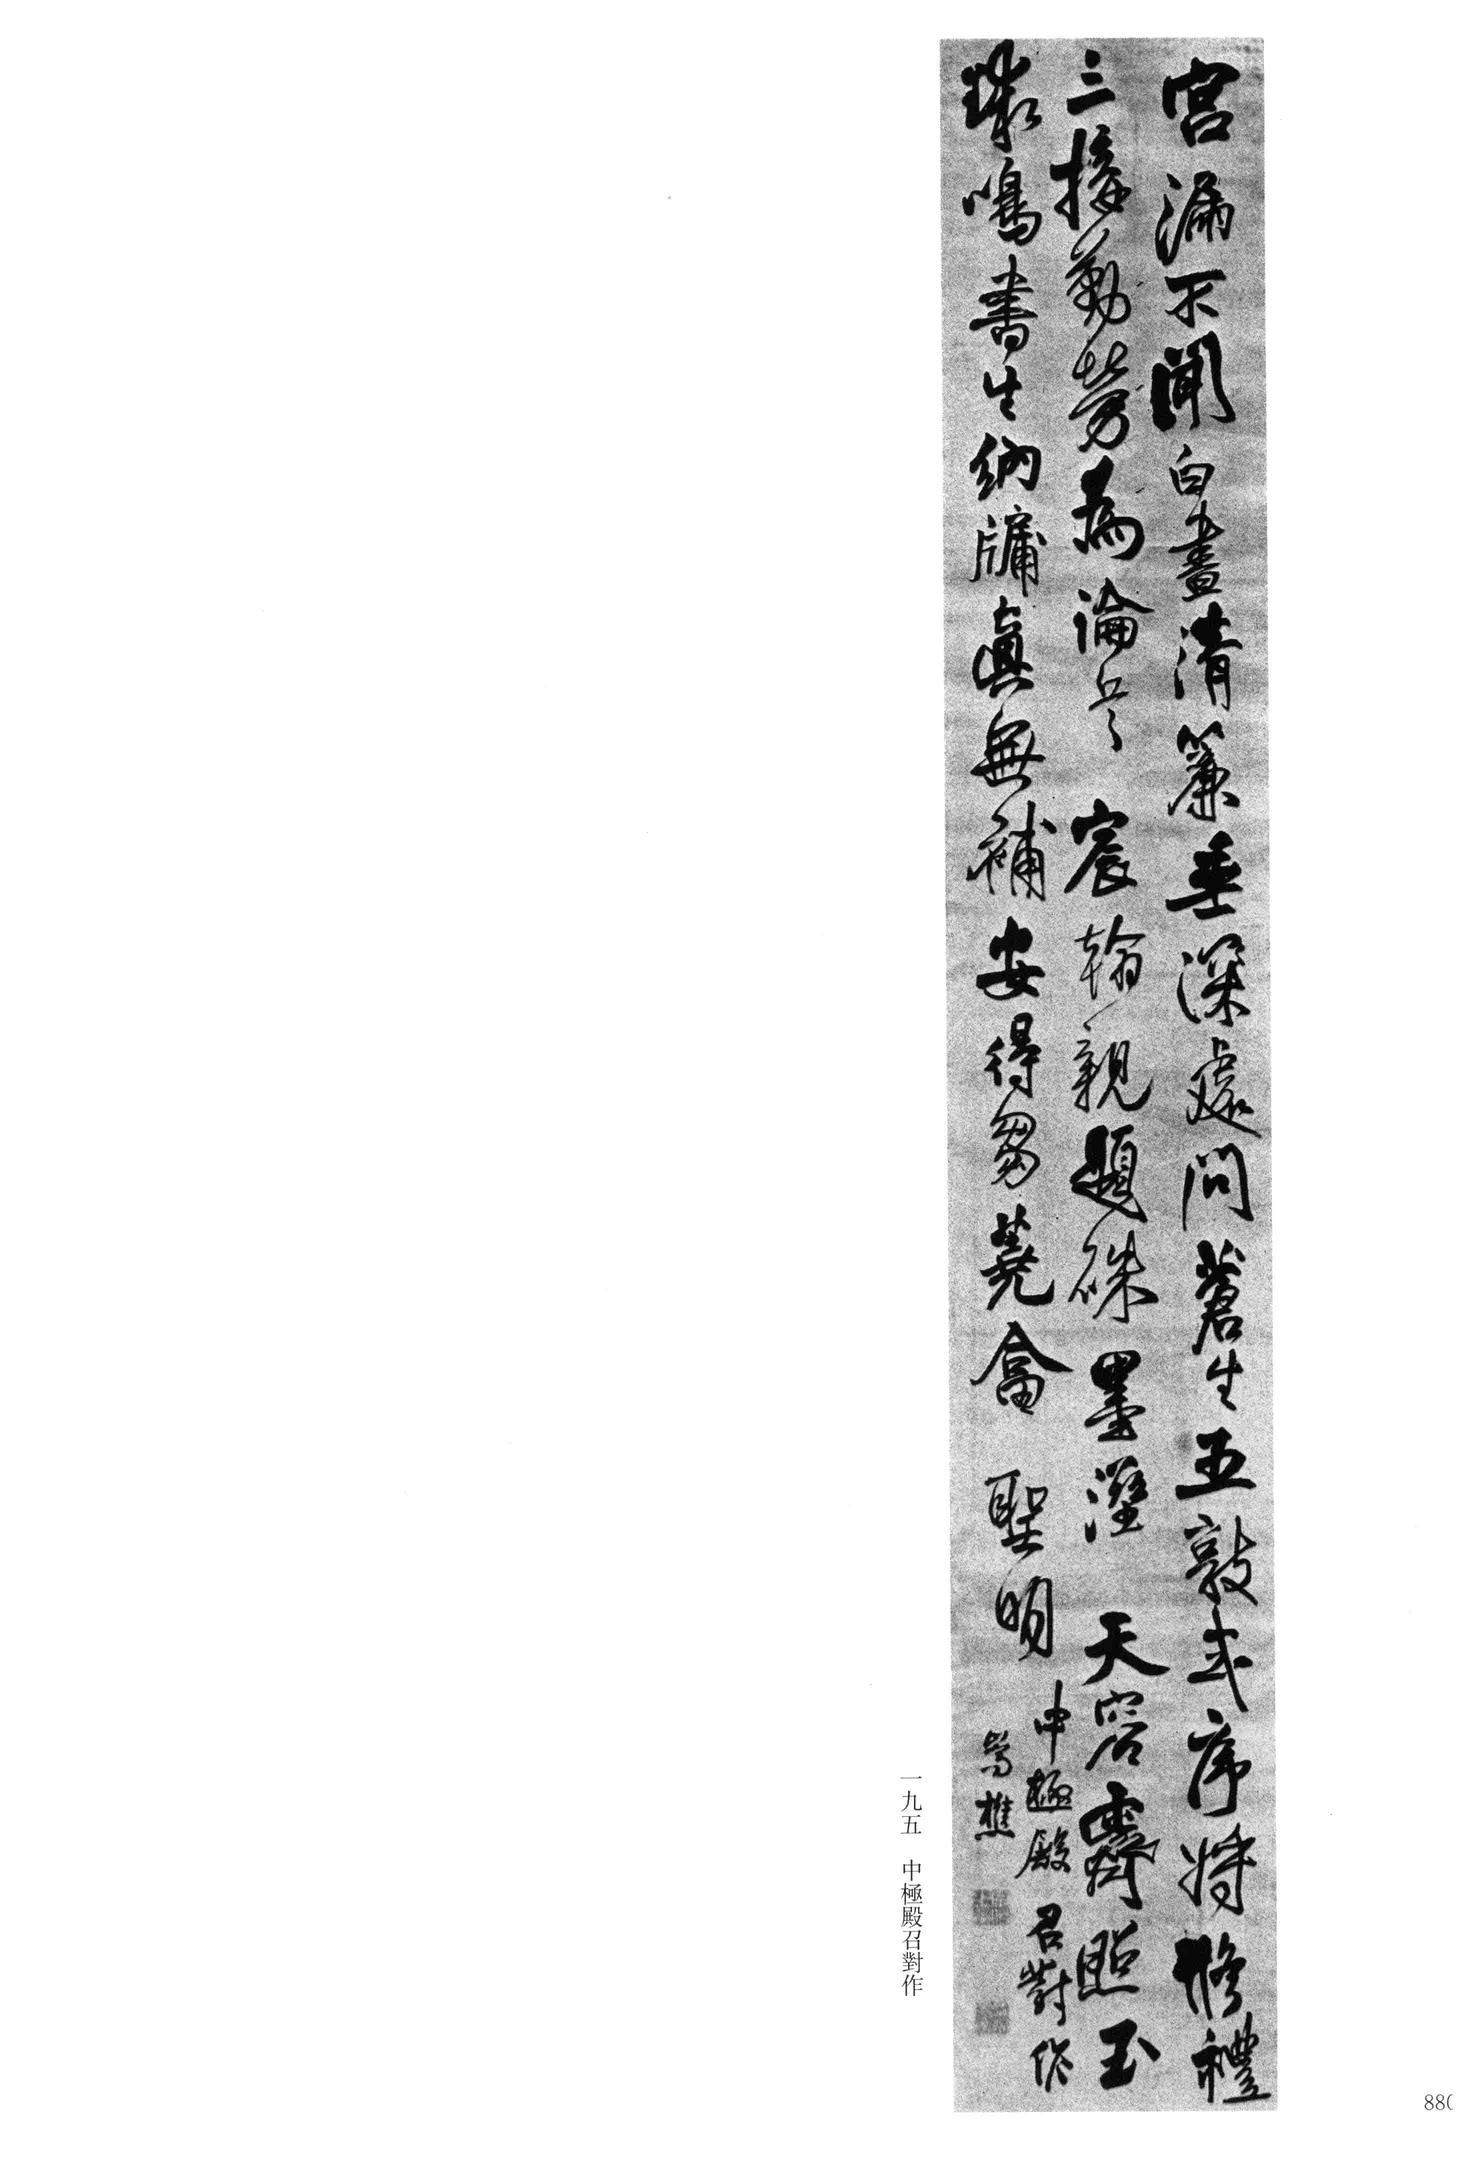 宮漏不聞白晝清簾垂深處問蒼生五敦式序將脩禮
三接勤勞為論兵 宸翰親題硃墨瀅 天容霽照玉
璁鳴書生納牖真無補安得芻蕘畣 聖明
中極殿 召對作
喬樵
一九五 中極殿召對作
880